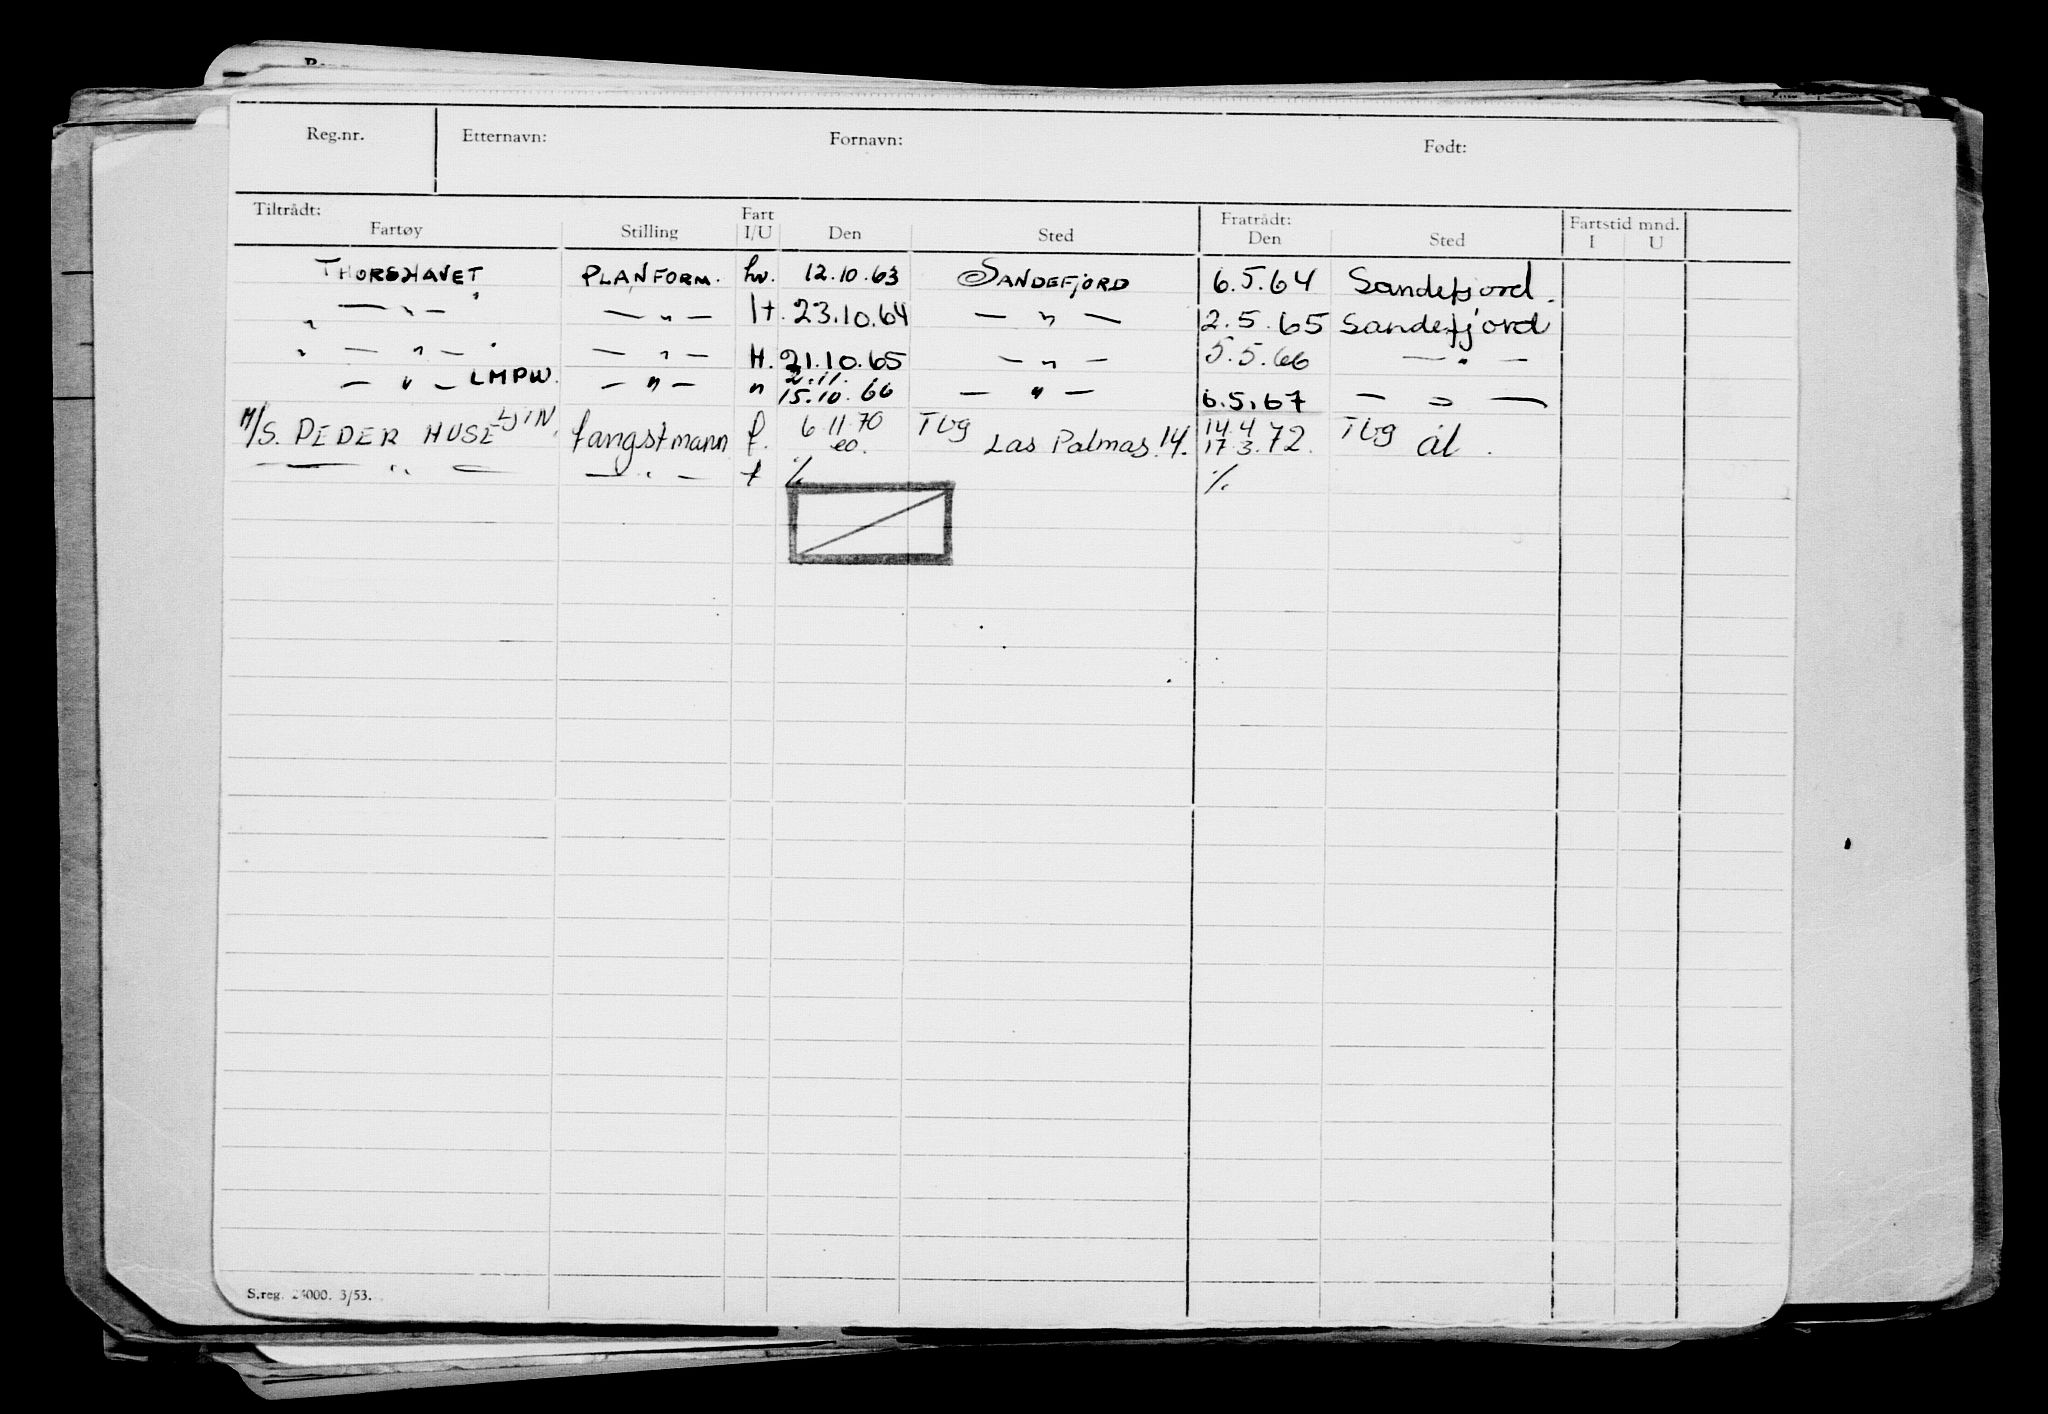 Reg.nr. Etternavn: Fornavn: Født:
Tiltrådt: Fart Fratrådt: Fartstid mnd.
Fartøy Stilling I/U Den Sted Den Sted I U
THORSHAVET PLANFORM. hv. 12.10.63 SANDEFJORD 6.5.64 Sandefjord.
— " — — " — H. 23.10.64 — " — 2.5.65 Sandefjord
" — " — — " — H. 21.10.65 — " — 5.5.66 — " —
2.11.
— " — LMPW. — " — " 15.10.66 — " — 6.5.67 — " —
LJIN. 6 11 70 Tbg 14.4 Tbg
M/S. PEDER HUSE fangstmann f. eo. Las Palmas. 14. 17.3.72. ål.
— " — — " — f % %
S.reg. 24000. 3/53.